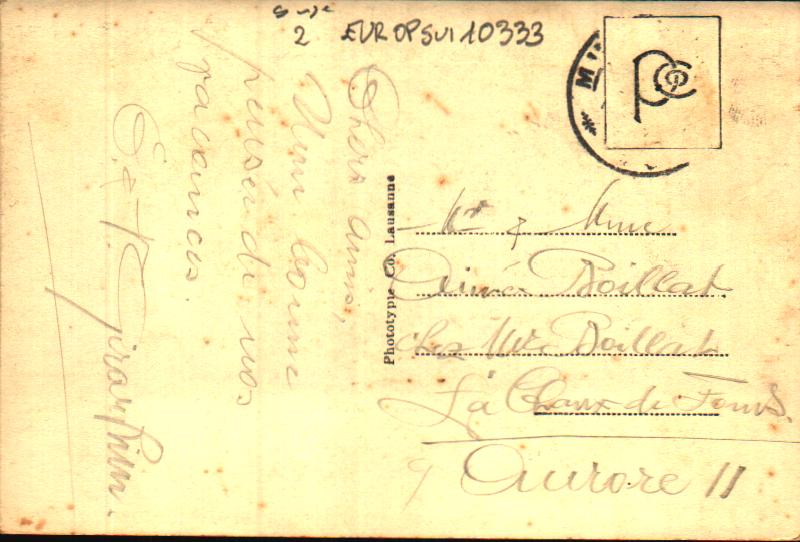 Suisse
2 EUROPSUI10333
M
PCC
Chers amis,
Une bonne
pensée de nos
vacances.
Phototypie Co. Lausanne
Mr & Mme
Aimé Boillat
chez Mr Boillat
La Chaux de Fonds.
Aurore 11